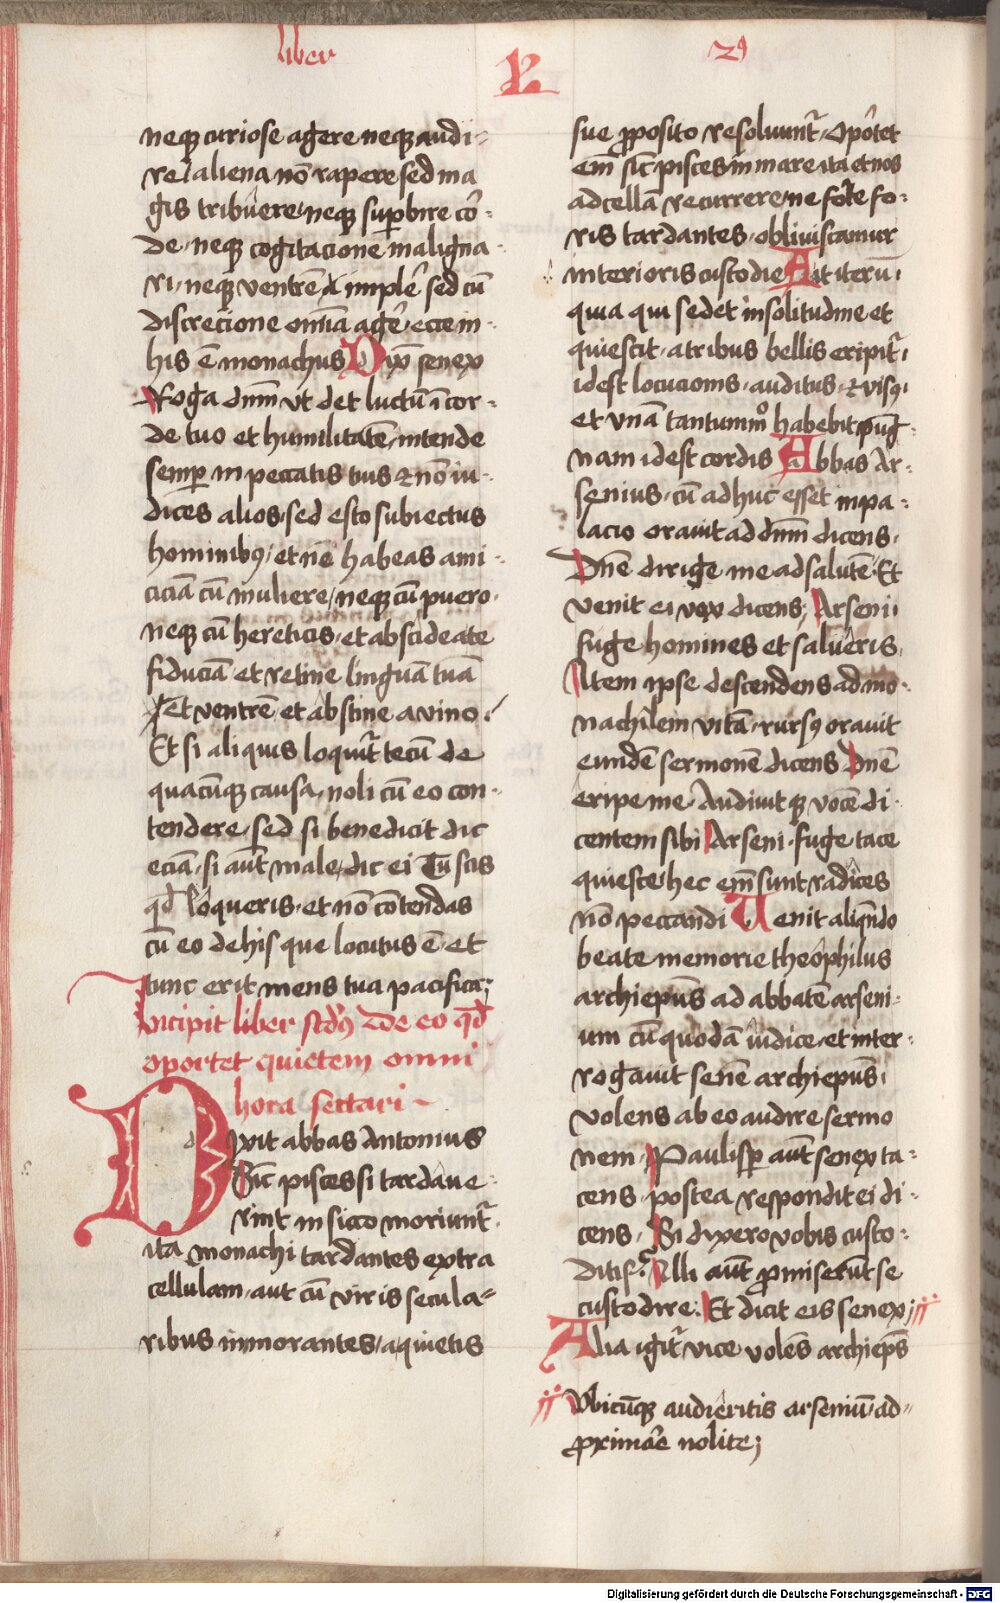 liber
R
2ꝰ
neqꝫ curiose agere neqꝫ audi-
re / aliena nō rapere sed ma
gis tribuere / neqꝫ suꝑbire cor-
de · neqꝫ cogitacione maligna-
ri / neqꝫ ventrē implē sed cū
discrecione omīa agē · ecce in-
his ē monachus Dix̄ senex
Roga dnm̄ vt det luctū ī cor-
de tuo et humilitatē / intende
semꝑ in peccatis tuis ⁊ nō iu-
dices alios / sed esto subiectus
hominibꝰ / et ne habeas ami-
ciciā cū muliere / neqꝫ cū puero ·
neqꝫ cū hereticis / et abscide a te
fiduciā et retine linguā tuā
Et ventrē / et abstine a vino ·
Et si aliquis loquit᷑ tecū de
quacūqꝫ causa / noli cū eo con-
tendere / sed si benedicit dic
eciā / si aūt male / dic ei Tu scis
qd̄ loqueris · et nō cōtendas
cū eo de his que locutus ē · et
tunc erit mens tua pacifica;
Incipit liber scd̓s De eo qd̄
oportet quietem omni
hora sectari
Dixit abbas Antonius
Sic̄ pisces si tardaue-
rint in sicco moriunt᷑
ita monachi tardantes extra
cellulam · aut cū viris secula-
ribus inmorantes / a quietis
sue ꝓposito resoluunt᷑ · Opōtet
em̄ sic̄ pisces in mare ita et nos
ad cellā recurrere / ne forte fo-
ris tardantes · obliuiscamur
interioris custodie Ait iterū ·
quia qui sedet in solitudine et
quiescit · a tribus bellis eripit᷑ ·
id est locucionis · auditus · ⁊ visꝰ ·
et vnā tantummō habebit pug-
nam id est cordis Abbas Ar-
senius · cū adhuc esset in pa-
lacio orauit ad dnm̄ dicens ·
Dnē dirige me ad salutē · Et
venit ei vox dicens; Arseni
fuge homines et salueris ·
Item ipse descendens ad mo-
nachilem vitā · rursꝰ orauit
eundē sermonē dicens Dnē
eripe me · Audiuit qꝫ vocē di-
centem sibi Arseni · fuge · tace
quiesce / hec em̄ sunt radices
nō peccandi Venit aliqn̄do
beate memorie theophilus
archiepūs ad abbatē arseni-
um cū quodā iudice · et inter-
rogauit senē archiepūs ·
volens ab eo audire sermo
nem · Paulisꝑ aūt senex ta-
cens · postea respondit ei di-
cens · Si dixero vobis custo-
ditis? Illi aūt ꝓmiserūt se
custodire · Et dicit eis senex;
Alia igit᷑ vice volēs archiepūs
Vbicūqꝫ audieritis arseniū · ad-
ꝓximare nolite;
Digitalisierung gefördert durch die Deutsche Forschungsgemeinschaft - DFG